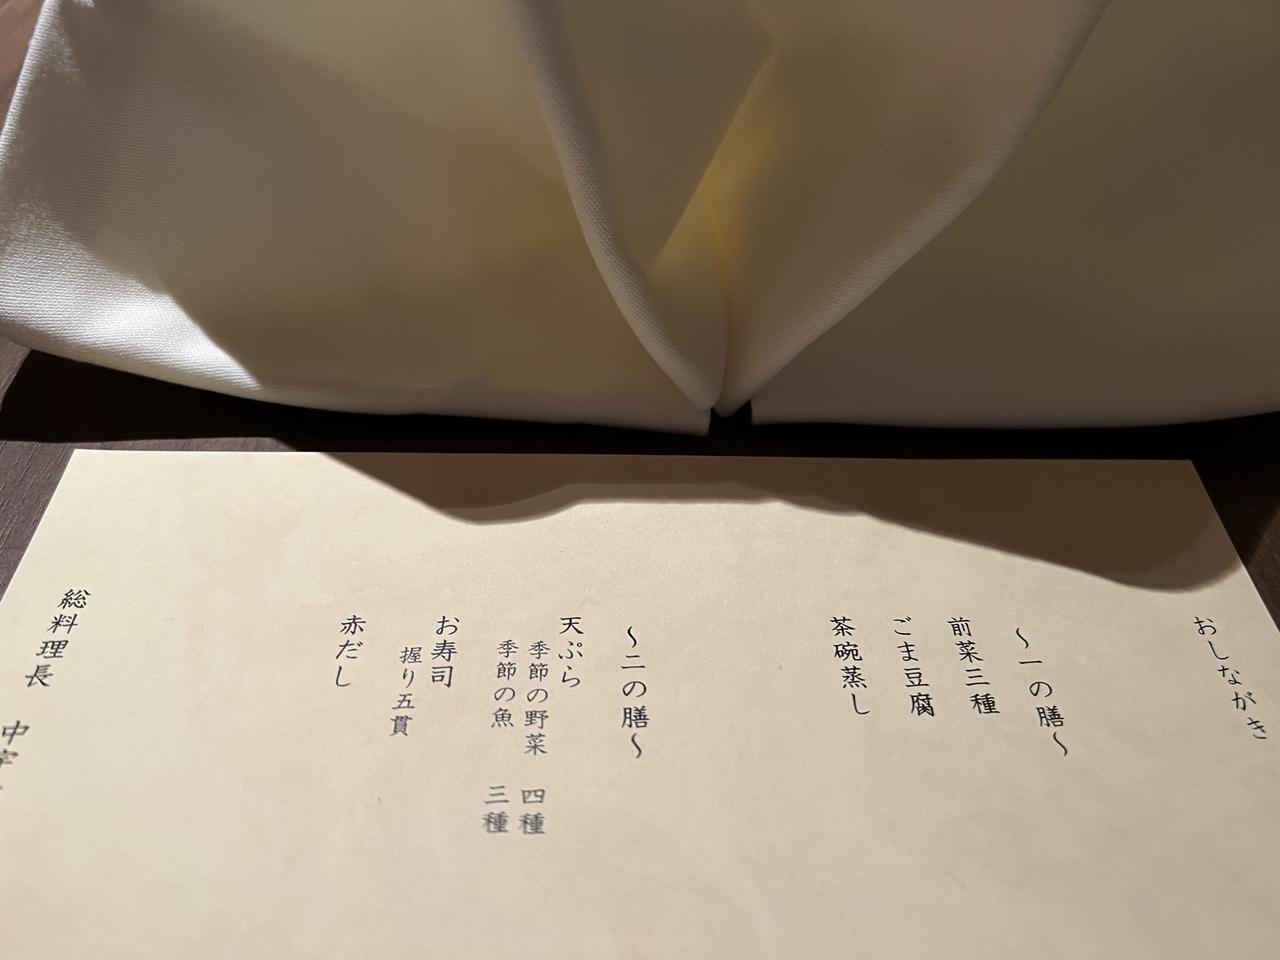 おしながき
～一の膳～
前菜三種
ごま豆腐
茶碗蒸し
～二の膳～
天ぷら
季節の野菜　四種
季節の魚　三種
お寿司
握り五貫
赤だし
総料理長　中